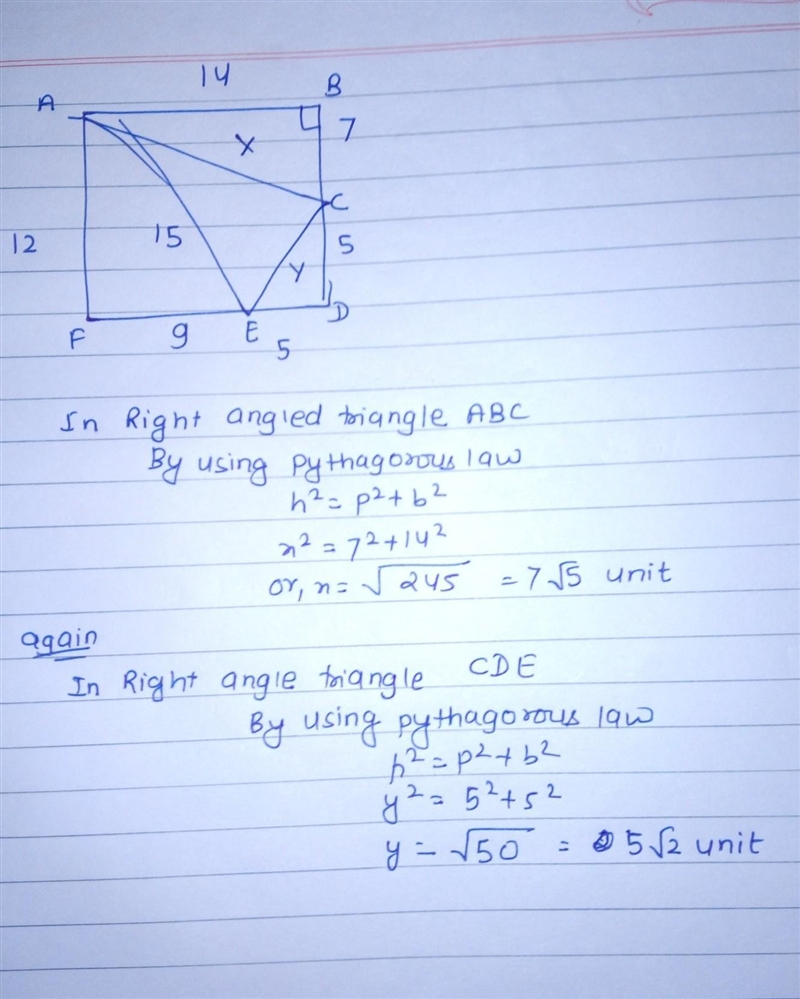 14
A B
X 7
C
12 15 5
Y
F 9 E 5 D
In Right angled triangle ABC
By using pythagorous law
h² = p² + b²
x² = 7² + 14²
or, x = √245 = 7√5 unit
again
In Right angle triangle CDE
By using pythagorous law
h² = p² + b²
y² = 5² + 5²
y = √50 = 5√2 unit